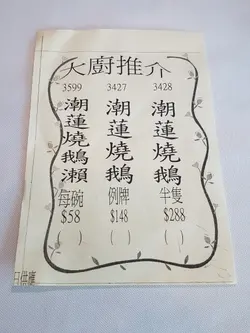 大廚推介
3599 3427 3428
潮蓮燒鵝瀨
潮蓮燒鵝
潮蓮燒鵝
每碗 例牌 半隻
$58 $148 $288
( ) ( ) ( )
日供應